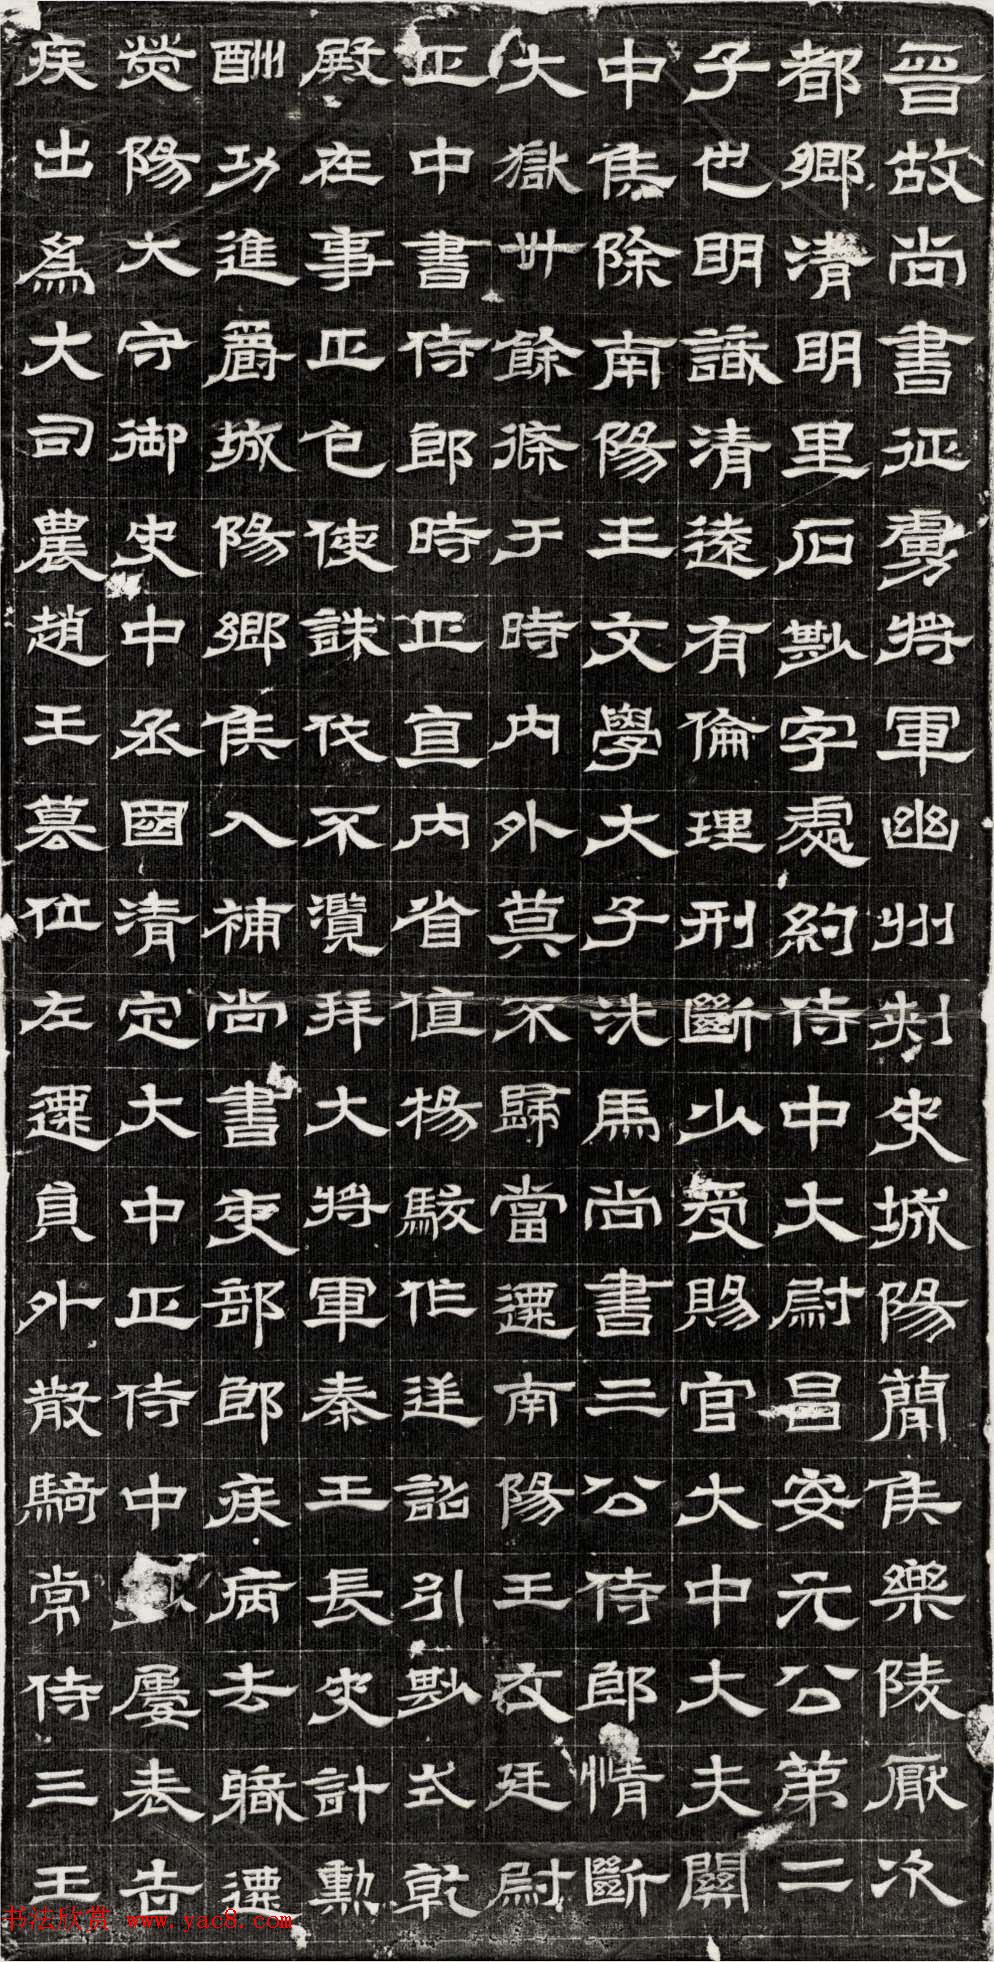 晉故尚書征虜將軍幽州刾史城陽簡侯樂陵厭次
都鄉清明里石尠字處約侍中大尉昌安元公第二
子也明識清遠有倫理刑斷少受賜官大中大夫關
中侯除南陽王文學大子洗馬尚書三公侍郎情斷
大獄卅餘條于時內外莫不歸當遷南陽王友廷尉
正中書侍郎時正直內省值楊駿作逆詔引尠式乾
殿在事正色使誅伐不濫拜大將軍秦王長史計勳
酬功進爵城陽鄉侯入補尚書吏部郎疾病去職遷
熒陽大守御史中丞國清定大中正侍中屢表告
疾出為大司農趙王篡位左遷員外散騎常侍三王
书法欣赏 www.yac8.com